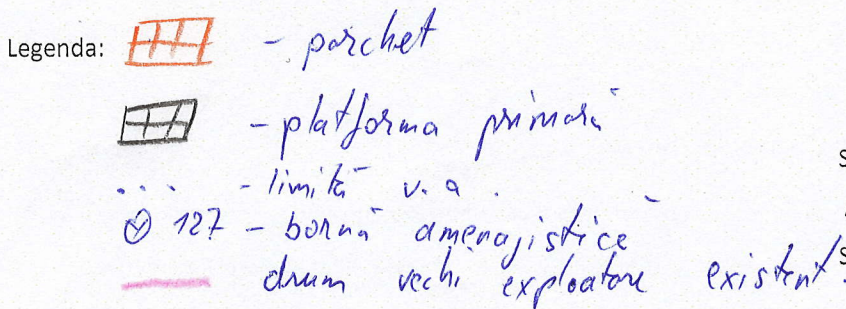 Legenda: - parchet
- platforma primară
... - limită v.a.
127 - bornă amenajistică
drum vechi exploatare existent.
S
S